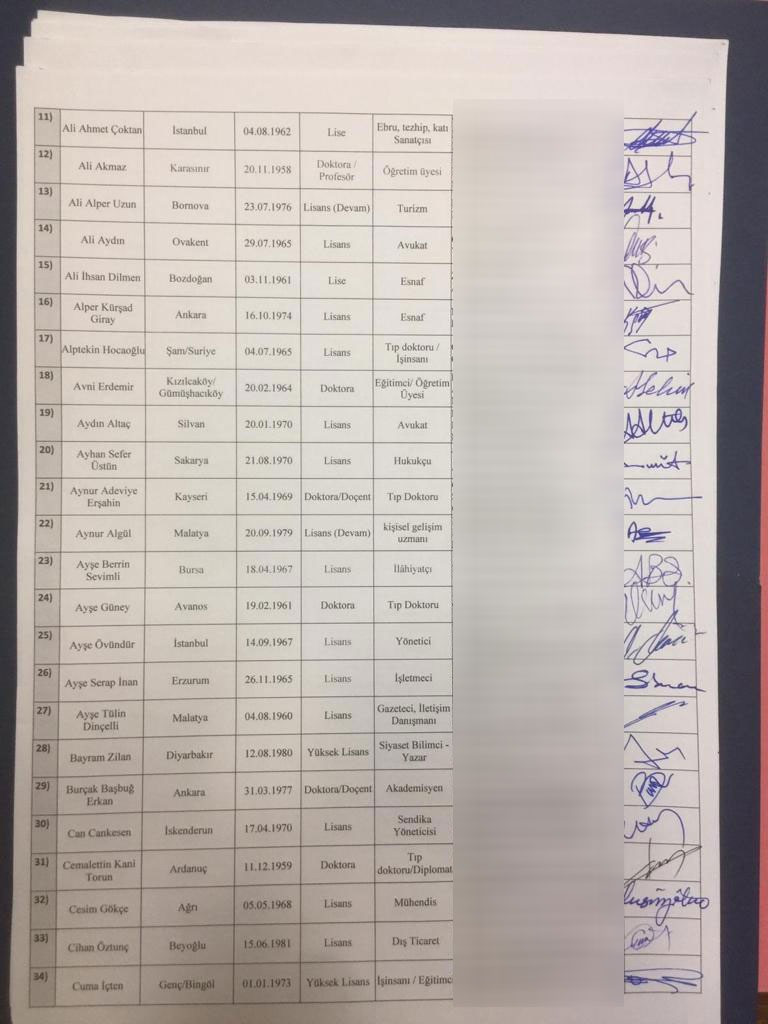 11) Ali Ahmet Çoktan İstanbul 04.08.1962 Lise Ebru, tezhip, katı
Sanatçısı
12) Ali Akmaz Karasınır 20.11.1958 Doktora /
Profesör Öğretim üyesi
13) Ali Alper Uzun Bornova 23.07.1976 Lisans (Devam) Turizm
14) Ali Aydın Ovakent 29.07.1965 Lisans Avukat
15) Ali İhsan Dilmen Bozdoğan 03.11.1961 Lise Esnaf
16) Alper Kürşad
Giray Ankara 16.10.1974 Lisans Esnaf
17) Alptekin Hocaoğlu Şam/Suriye 04.07.1965 Lisans Tıp doktoru /
İşinsanı
18) Avni Erdemir Kızılcaköy/
Gümüşhacıköy 20.02.1964 Doktora Eğitimci/ Öğretim
Üyesi
19) Aydın Altaç Silvan 20.01.1970 Lisans Avukat
20) Ayhan Sefer
Üstün Sakarya 21.08.1970 Lisans Hukukçu
21) Aynur Adeviye
Erşahin Kayseri 15.04.1969 Doktora/Doçent Tıp Doktoru
22) Aynur Algül Malatya 20.09.1979 Lisans (Devam) kişisel gelişim
uzmanı
23) Ayşe Berrin
Sevimli Bursa 18.04.1967 Lisans İlâhiyatçı
24) Ayşe Güney Avanos 19.02.1961 Doktora Tıp Doktoru
25) Ayşe Övündür İstanbul 14.09.1967 Lisans Yönetici
26) Ayşe Serap İnan Erzurum 26.11.1965 Lisans İşletmeci
27) Ayşe Tülin
Dinçelli Malatya 04.08.1960 Lisans Gazeteci, İletişim
Danışmanı
28) Bayram Zilan Diyarbakır 12.08.1980 Yüksek Lisans Siyaset Bilimci -
Yazar
29) Burçak Başbuğ
Erkan Ankara 31.03.1977 Doktora/Doçent Akademisyen
30) Can Cankesen İskenderun 17.04.1970 Lisans Sendika
Yöneticisi
31) Cemalettin Kani
Torun Ardanuç 11.12.1959 Doktora Tıp
doktoru/Diplomat
32) Cesim Gökçe Ağrı 05.05.1968 Lisans Mühendis
33) Cihan Öztunç Beyoğlu 15.06.1981 Lisans Dış Ticaret
34) Cuma İçten Genç/Bingöl 01.01.1973 Yüksek Lisans İşinsanı / Eğitimc